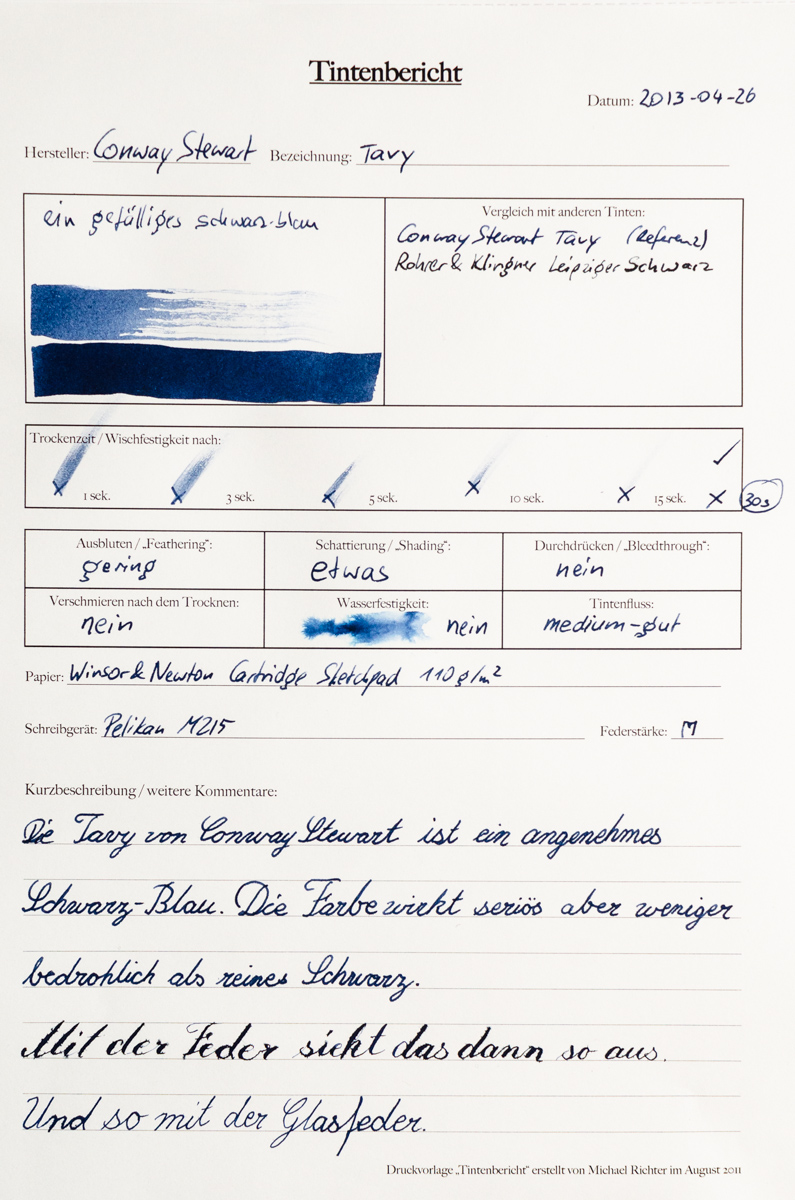 Tintenbericht
Datum: 2013-04-26
Hersteller: Conway Stewart Bezeichnung: Tavy
ein gefälliges schwarz-blau
Vergleich mit anderen Tinten:
Conway Stewart Tavy (Referenz)
Rohrer & Klingner Leipziger Schwarz
Trockenzeit / Wischfestigkeit nach:
✓
x 1 sek. x 3 sek. x 5 sek. x 10 sek. x 15 sek. x 30s
Ausbluten / „Feathering“: Schattierung / „Shading“: Durchdrücken / „Bleedthrough“:
gering etwas nein
Verschmieren nach dem Trocknen: Wasserfestigkeit: Tintenfluss:
nein nein medium-gut
Papier: Winsor & Newton Cartridge Sketchpad 110 g/m²
Schreibgerät: Pelikan M215 Federstärke: M
Kurzbeschreibung / weitere Kommentare:
Die Tavy von Conway Stewart ist ein angenehmes
Schwarz-Blau. Die Farbe wirkt seriös aber weniger
bedrohlich als reines Schwarz.
Mit der Feder sieht das dann so aus.
Und so mit der Glasfeder.
Druckvorlage „Tintenbericht“ erstellt von Michael Richter im August 2011